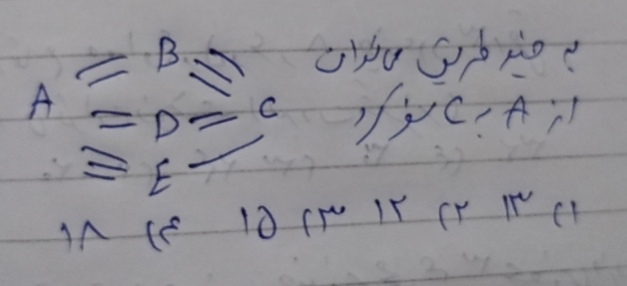 به چند طریق می‌توان
از A به C سفر کرد
B
A
D C
E
۱) ۱۳ ۲) ۱۲ ۳) ۱۵ ۴) ۱۸